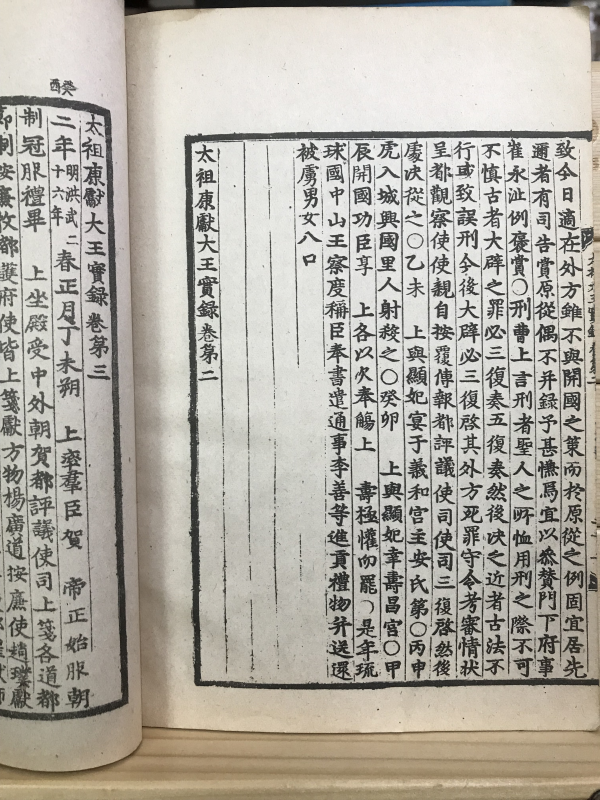 致今日適在外方雖不與開國之策而於原從之例固宜居先
邇者有司告賞原從偶不幷錄予甚憮焉宜以叅贊門下府事
崔永沚例褒賞○刑曹上言刑者聖人之所恤用刑之際不可
不愼古者大辟之罪必三復奏五復奏然後決之近者古法不
行或致誤刑今後大辟必三復啓其外方死罪守令考審情狀
呈都觀察使使親自按覆傳報都評議使司使司三復啓然後
處決從之○乙未 上與顯妃宴于義和宮主安氏第○丙申
虎入城興國里人射殺之○癸卯 上與顯妃幸壽昌宮○甲
辰開國功臣享 上各以次奉觴上 壽極懽而罷○是年琉
球國中山王察度稱臣奉書遣通事李善等進貢禮物幷送還
被虜男女八口
太祖康獻大王實錄卷第二
癸酉
太祖康獻大王實錄卷第三
二年明洪武二十六年春正月丁未朔 上率羣臣賀 帝正始服朝
制冠服禮畢 上坐殿受中外朝賀都評議使司上箋各道都
節制按廉牧都護府使皆上箋獻方物楊廣道按廉使趙璞獻